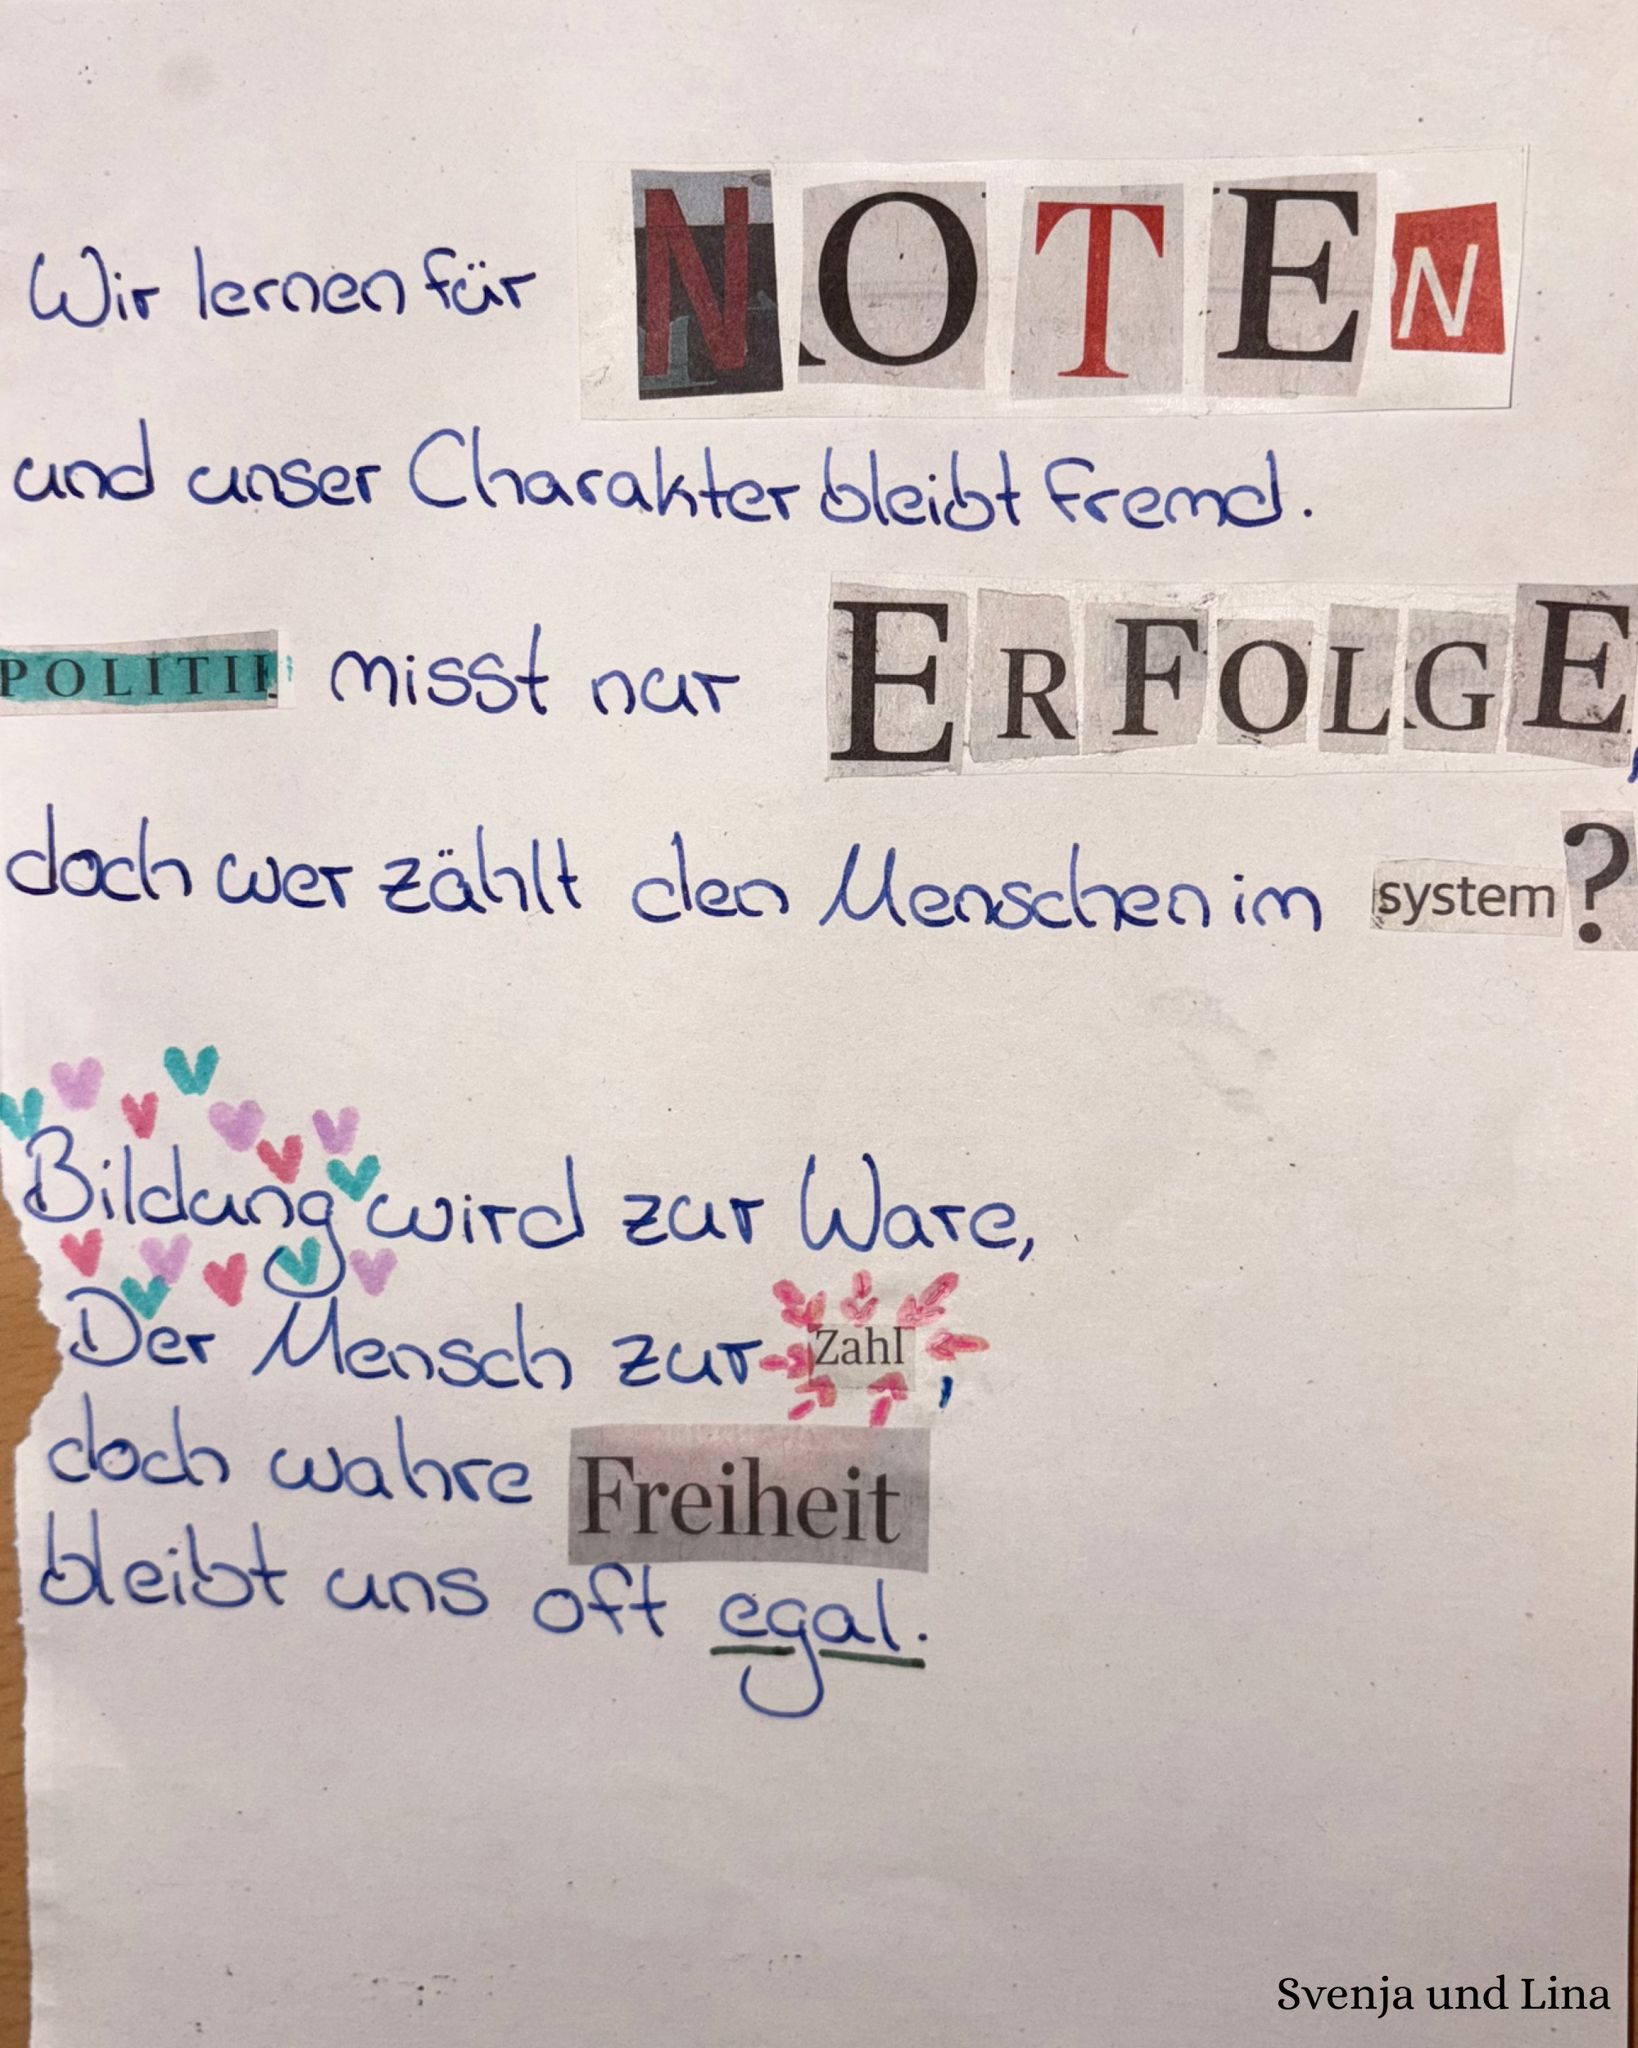 Wir lernen für NOTEN
und unser Charakter bleibt fremd.
POLITIK misst nur ERFOLGE,
doch wer zählt den Menschen im system?
Bildung wird zur Ware,
Der Mensch zur Zahl,
doch wahre Freiheit
bleibt uns oft egal.
Svenja und Lina